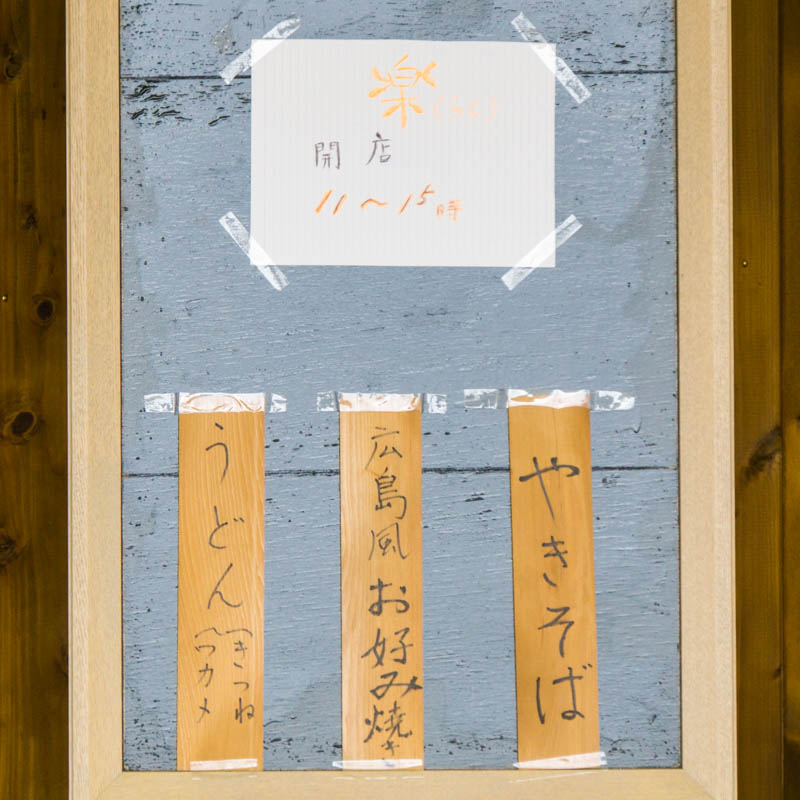 楽（らく）
開店
11〜15時
やきそば
広島風お好み焼き
うどん
（きつね
（ワカメ